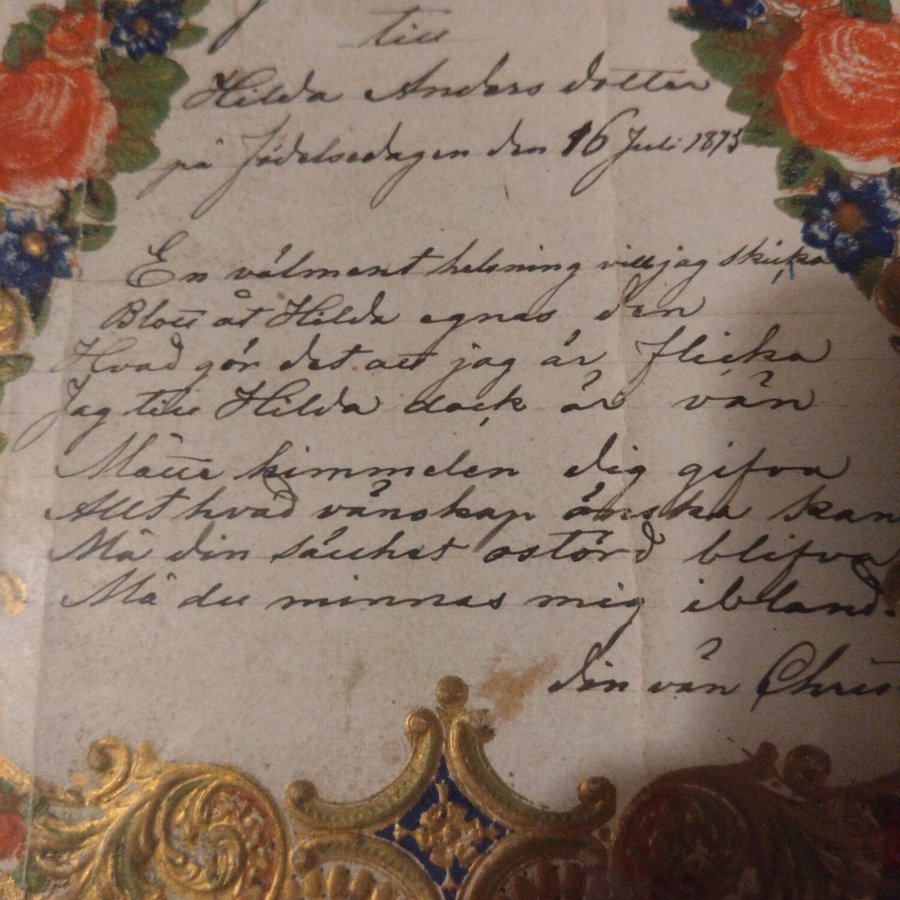 till
Hilda Andersdotter
på Födelsedagen den 16 Juli 1873
En välment helsning vill jag skicka
Blott åt Hilda egnas den
Hvad gör det att jag är flicka
Jag till Hilda dock är vän
Måtte himmelen dig gifva
Allt hvad vänskap önska kan
Må din sällhet ostörd blifva
Må du minnas mig ibland.
din vän Chris